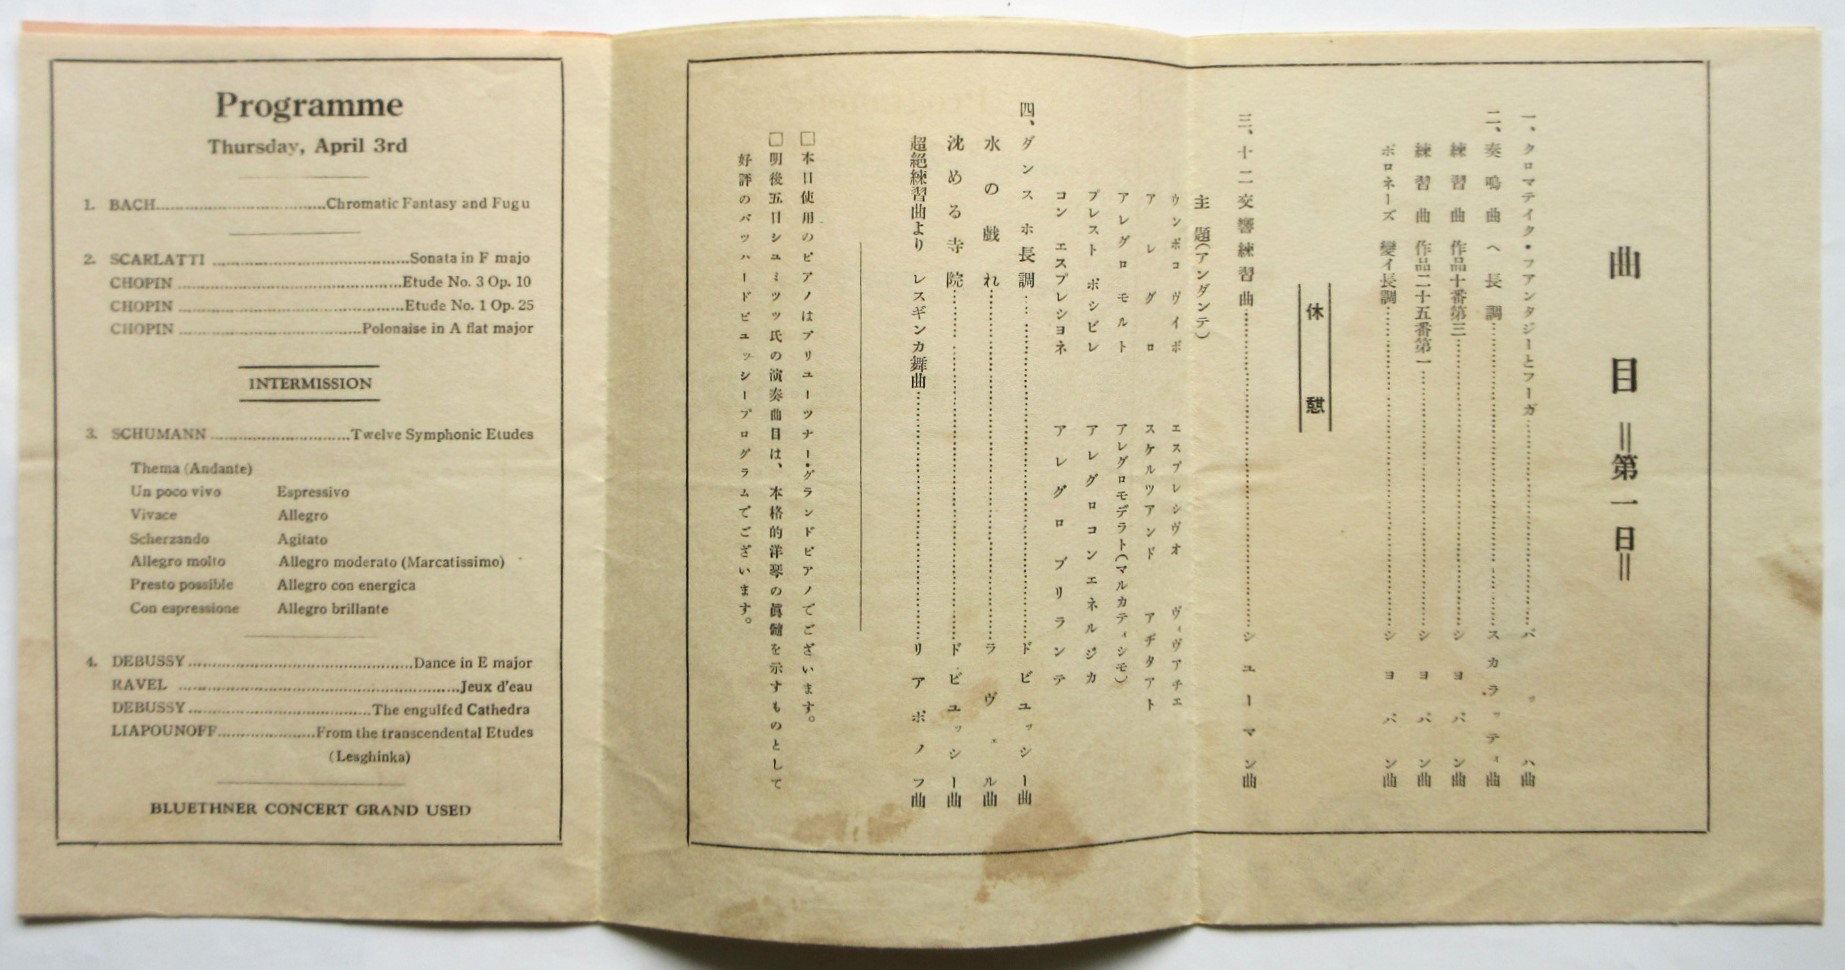 Programme
Thursday, April 3rd
1. BACH..............................Chromatic Fantasy and Fugu
2. SCARLATTI ....................................Sonata in F majo
CHOPIN ........................................Etude No. 3 Op. 10
CHOPIN ........................................Etude No. 1 Op. 25
CHOPIN .................................Polonaise in A flat major
INTERMISSION
3. SCHUMANN .........................Twelve Symphonic Etudes
Thema (Andante)
Un poco vivo Espressivo
Vivace Allegro
Scherzando Agitato
Allegro molto Allegro moderato (Marcatissimo)
Presto possible Allegro con energica
Con espressione Allegro brillante
4. DEBUSSY.........................................Dance in E major
RAVEL ..................................................Jeux d'eau
DEBUSSY.................................The engulfed Cathedra
LIAPOUNOFF..................From the transcendental Etudes
(Lesghinka)
BLUETHNER CONCERT GRAND USED
曲目=第一日=
一、クロマテイク・フアンタジーとフーガ……バッハ曲
二、奏鳴曲 ヘ長調……スカラッティ曲
練習曲 作品十番第三……シヨパン曲
練習曲 作品二十五番第一……シヨパン曲
ポロネーズ 變イ長調……シヨパン曲
休憩
三、十二交響練習曲……シユーマン曲
主題(アンダンテ)
ウンポコヴイボ エスプレシヴオ ヴィヴアチエ
アレグロ スケルツアンド アヂタアト
アレグロ モルト アレグロモデラト(マルカティシモ)
プレスト ポシビレ アレグロコンエネルジカ
コン エスプレシヨネ アレグロ ブリランテ
四、ダンス ホ長調……ドビユッシー曲
水の戯れ……ラヴェル曲
沈める寺院……ドビユッシー曲
超絕練習曲より レスギンカ舞曲……リアポノフ曲
□本日使用のピアノはブリユーツナー・グランドピアノでございます。
□明後五日シユミッツ氏の演奏曲目は、本格的洋琴の眞髄を示すものとして
好評のバツハードビユッシープログラムでございます。